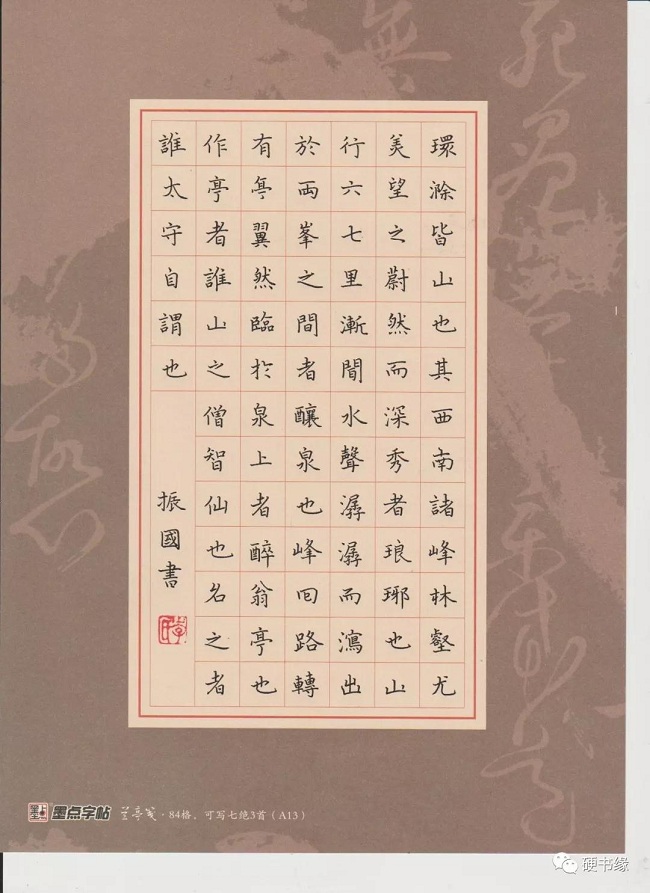 環滁皆山也其西南諸峰林壑尤
美望之蔚然而深秀者琅琊也山
行六七里漸聞水聲潺潺而瀉出
於两峯之間者釀泉也峰回路轉
有亭翼然臨於泉上者醉翁亭也
作亭者誰山之僧智仙也名之者
誰太守自謂也
振國書
墨点字帖 兰亭笺·84格，可写七绝3首（A13）
硬书缘